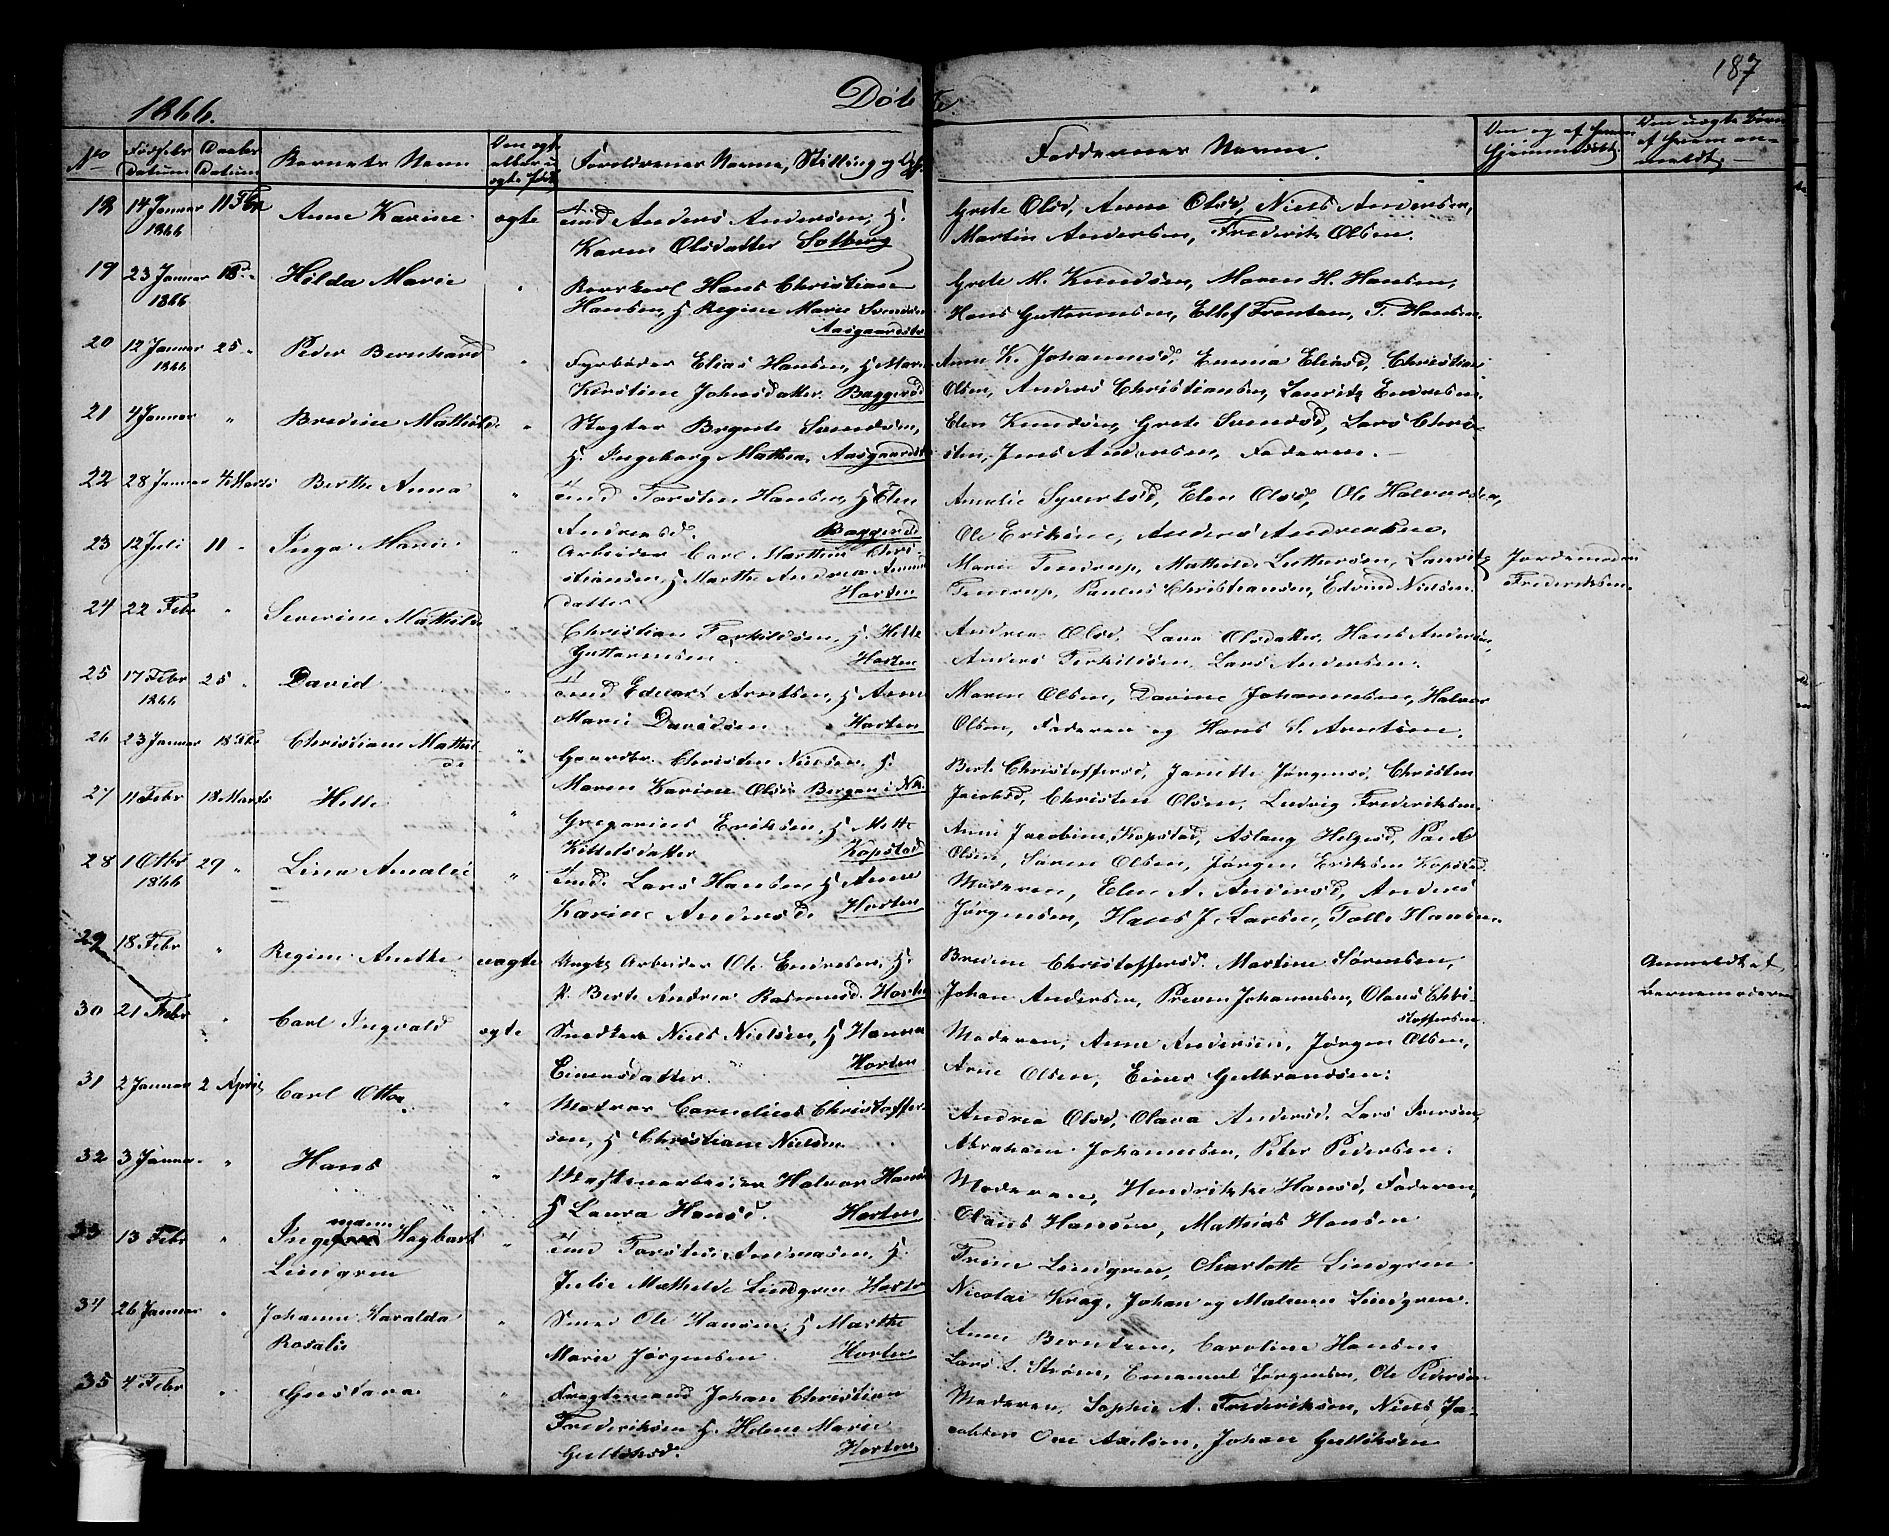 187
1866.
Døbte
No
Fødsels Datum
Daabs Datum
Barnets Navn
Den ægte eller uægte født
Forældrenes Navne, Stilling og
Faddernes Navne.
Den og af hvem Hjemmedøbt
Den uægte Barn af hvem anmeldt
18 14 Januar 1866 11 Febr Anne Karine ægte Anders Andersen, H.
Karen Olsdatter Solberg
Grete Olsd, Anne Olsd, Niels Andersen,
Martin Andersen, Frederik Olsen.
19 23 Januar 1866 18 Hilda Marie " Hans Christian
Hansen, H Regine Marie Svendsen
Aasgaardstr
Grete M. Knudsen, Maren H. Hansen,
Hans Guttormsen, Ellef Frantsen, T. Hansen.
20 12 Januar 1866 25 " Peder Bernhard " Fyrbøder Elias Hansen, H Maren
Kirstine Johnsdatter. Baggerød
Anne K. Johannesd, Emma Eliasd, Christian
Olsen, Anders Christiansen, Lauritz Endresen.
21 4 Januar " Bredine Mathilde " Slagter Brynte Svendsen,
H. Ingeborg Mathea. Aasgaardstr
Elen Knudsen, Grete Svendsd, Lars Chri-
sten, Jens Andersen, Faderen.
22 28 Januar 4 Marts Berthe Anna " Torsten Hansen, H Elen
Andreasd. Baggerød
Amalie Syvertsd, Elen Olsd, Ole Halvorsen,
Ole Eriksen, Anders Andreasen.
23 12 Juli 11 " Inga Marie " Arbeider Carl Marthin Chri-
stiansen, H Marthe Andrea
datter Horten
Marie Tendrup, Mathilde Luttersen, Lauritz
Tendrup, Paulus Christiansen, Edvind Nielsen.
Jordemoder
Frederiksen.
24 22 Febr " Severine Mathilde Christian Torkildsen, H. Helle
Guttormsen. Horten
Andrea Olsd, Lava Olsdatter, Hans Andersen,
Anders Terkildsen, Lars Andersen.
25 17 Febr 1866 25 " David " Edvard Arntsen, H Anne
Marie Davidsen Horten
Maren Olsen, Davine Johannesen, Halvor
Olsen, Faderen og Hans S. Arntsen.
26 23 Januar 18 Christiane Mathil-
de " Gaardbr. Christen Nielsen, H.
Maren Karine Olsd Borgen i
Berte Christoffersd, Janette Jørgensd, Christen
Jacobsd, Christen Olsen, Ludvig Frederiksen.
27 11 Febr 18 Marts Helle " Gregorius Eriksen, H Mette
Kittelsdatter Kopstad
Anne Jacobine Kopstad, Aslaug Helgesd, Paul
Olsen, Søren Olsen, Jørgen Eriksen Kopstad.
28 1 Octbr 1866 29 " Lina Amalie " Lars Hansen, H Anne
Karine Andersd. Horten
Moderen, Elen A. Andersd, Anders
Jørgensen, Hans J. Larsen, Tolle Hansen.
29 18 Febr " Regine Anethe uægte Arbeider Ole Endresen, H.
P. Berte Andrea Rasmusd. Horten
Bredine Christoffersd. Martine Sørensen,
Johan Andersen, Preven Johannesen, Olaus Chri-
stoffersen.
Anmeldt af
Barnemoderen
30 21 Febr " Carl Ingvald ægte Snedker Niels Nielsen, H Hanna
Einersdatter. Horten
Moderen, Anne Andersen, Jørgen Olsen,
Arne Olsen, Einer Gulbrandsen.
31 2 Januar 2 April Carl Otto " Matros Cornelius Christoffer-
sen, H Christiane Nielsen
Andrea Olsd, Olava Andersd. Lars Iversen,
Abraham Johannesen, Peter Pedersen.
32 3 Januar " Hans " Halvor Hansen
H Laura Hansd. Horten
Moderen, Hendrikke Hansd, Faderen,
Olaus Hansen, Mathias Hansen
33 13 Febr " Ingemann Hagbart
Lindgren " Torsten Andreasen, H.
Julie Mathilde Lindgren Horten
Trine Lindgren, Charlotte Lindgren
Nicolai Krag, Johan og Lindgren.
34 26 Januar " Johanne Haralda
Rosalie " Smed Ole Hansen, H Marthe
Marie Jørgensen. Horten
Anne Berntsen, Caroline Hansen,
Lars L. Strøm, Emanuel Jørgensen, Ole Pedersen
35 4 Febr " Gustava " Fragtemand Johan Christian
Frederiksen H. Helene Marie
Gulliksd. Horten
Moderen, Sophie A. Frederiksen, Niels Ja-
cobsen Ove Axelsen, Johan Gulliksen